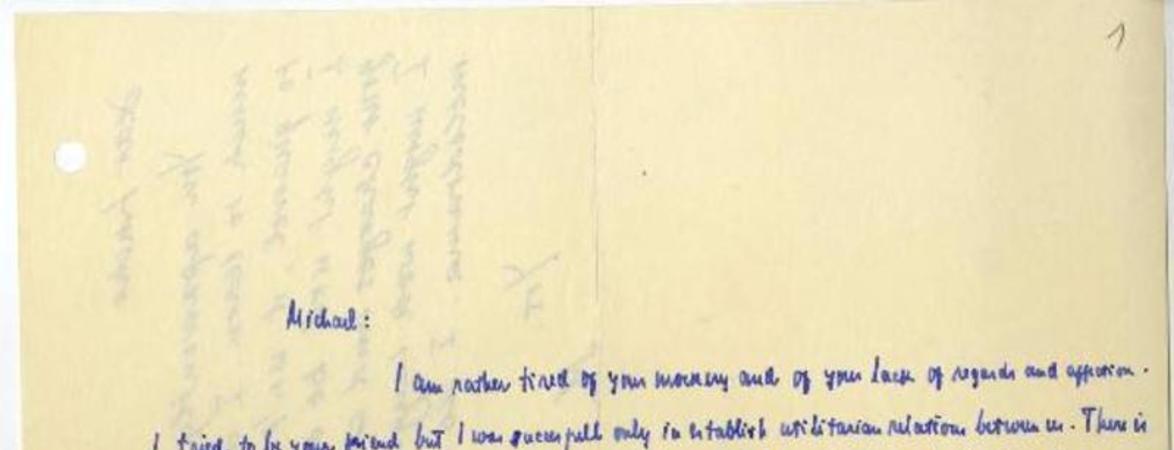 1
Michael:
I am rather tired of your mockery and of your lack of regards and affection.
I tried to be your friend but I was succesfull only in establish utilitarian relations between us. There is